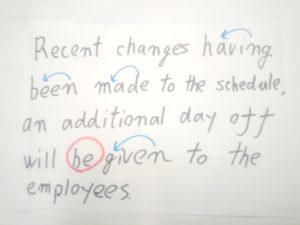 Recent changes having
been made to the schedule,
an additional day off
will be given to the
employees.